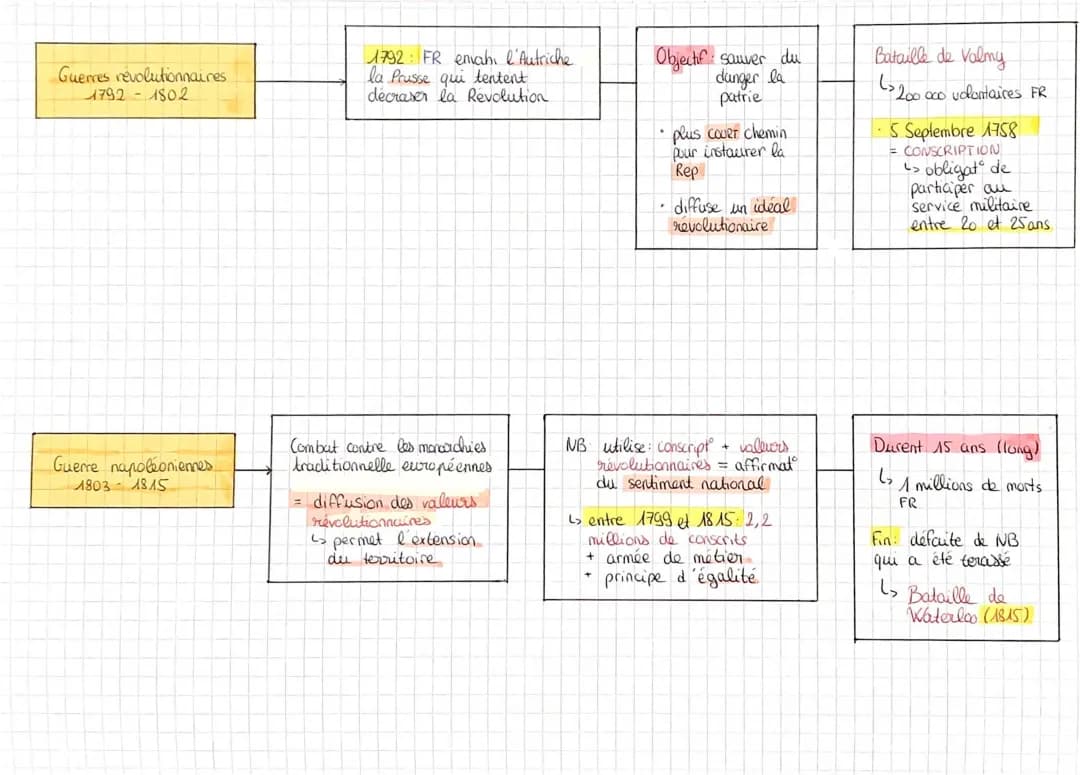 Guerres révolutionnaires
1792 - 1802
1792 : FR envahi l'Autriche
la Prusse qui tentent
d'écraser la Révolution
Objectif : sauver du
danger la
patrie
• plus court chemin
pour instaurer la
Rep
• diffuse un idéal
révolutionaire
Bataille de Valmy
↳ 200 000 volontaires FR
• 5 Septembre 1758
= CONSCRIPTION
↳ obligat° de
participer au
service militaire
entre 20 et 25 ans
Guerre napoléoniennes
1803 - 1815
Combat contre les monarchies
traditionnelle européennes
= diffusion des valeurs
révolutionnaires
↳ permet l'extension
du territoire
NB utilise : conscript° + valeurs
révolutionnaires = affirmat°
du sentiment national
↳ entre 1799 et 1815 : 2,2
millions de conscrits
+ armée de métier
+ principe d'égalité
Durent 15 ans (long)
↳ 1 millions de morts
FR
Fin : défaite de NB
qui a été terassé
↳ Bataille de
Waterloo (1815)